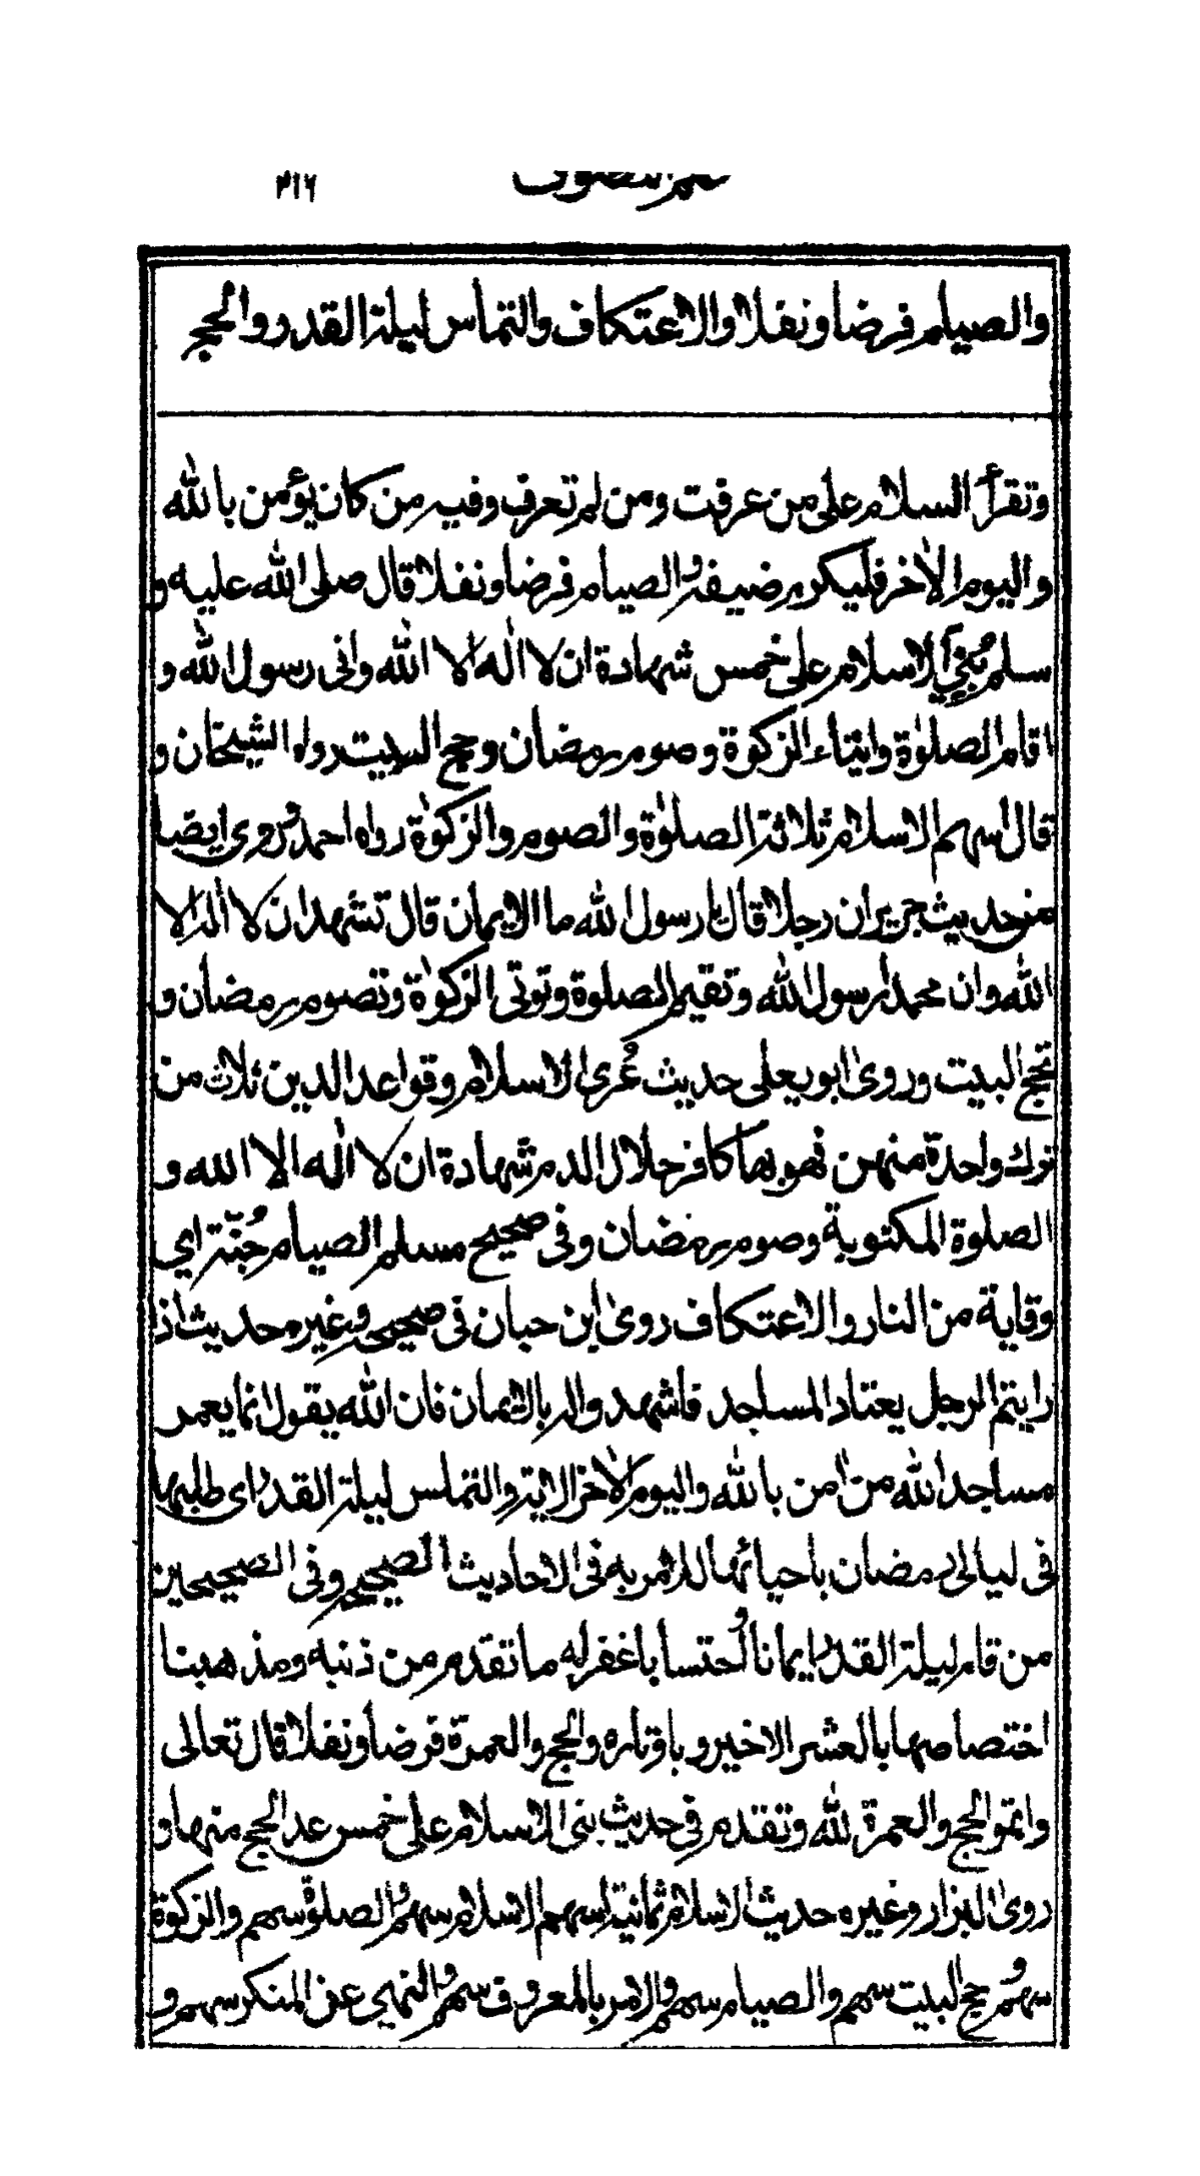 علم التصوف ٢١٦
والصيام فرضا ونفلا والاعتكاف والتماس ليلة القدر والحج
وتقرأ السلام على من عرفت ومن لم تعرف وفيه من كان يؤمن بالله
واليوم الأٰخر فليكرم ضيفه والصيام فرضا ونفلا قال صلى الله عليه و
سلم بُنِيَ الاسلام على خمس شهادة ان لا الٰه الا الله وانى رسول الله و
اقام الصلوٰة وايتاء الزكوة وصوم رمضان وحج البيت رواه الشيخان و
قال اسهم الاسلام ثلاثة الصلوٰة والصوم والزكوٰة رواه احمد وروى ايضا
من حديث جرير ان رجلا قال يا رسول الله ما الايمان قال تشهد ان لا الٰه الا
الله وان محمدا رسول الله وتقيم الصلوة وتوتى الزكوٰة وتصوم رمضان و
تحج البيت وروىٰ ابو يعلى حديث عُرى الاسلام وقواعد الدين ثلاث من
ترك واحدة منهن فهو بها كافر حلال الدم شهادة ان لا الٰه الا الله و
الصلوة المكتوبة وصوم رمضان وفى صحيح مسلم الصيام جُنّة اي
وقاية من النار والاعتكاف روىٰ ابن حبان فى صحيحه وغيره حديث اذا
رايتم الرجل يعتاد المساجد فاشهدوا له بالايمان فان الله يقول انما يعمر
مساجد الله من اٰمن بالله واليوم الأٰخر الاية والتماس ليلة القدر اى طلبها
فى ليالى رمضان باحيائها للامر به فى الاحاديث الصحيحة وفى الصحيحين
من قام ليلة القدر ايمانا واحتسابا غفر له ما تقدم من ذنبه ومذهبنا
اختصاصها بالعشر الاخير و باوتاره والحج والعمرة فرضا ونفلا قال تعالى
واتموا الحج والعمرة لله وتقدم فى حديث بنى الاسلام على خمس عد الحج منها و
روىٰ البزار وغيره حديث الاسلام ثمانية اسهم الاسلام سهم والصلوٰة سهم والزكوة
سهم وحج البيت سهم والصيام سهم والامر بالمعروف سهم والنهى عن المنكر سهم و